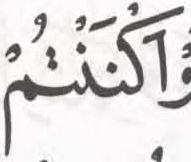 وْاَكْنَنْتُمْ